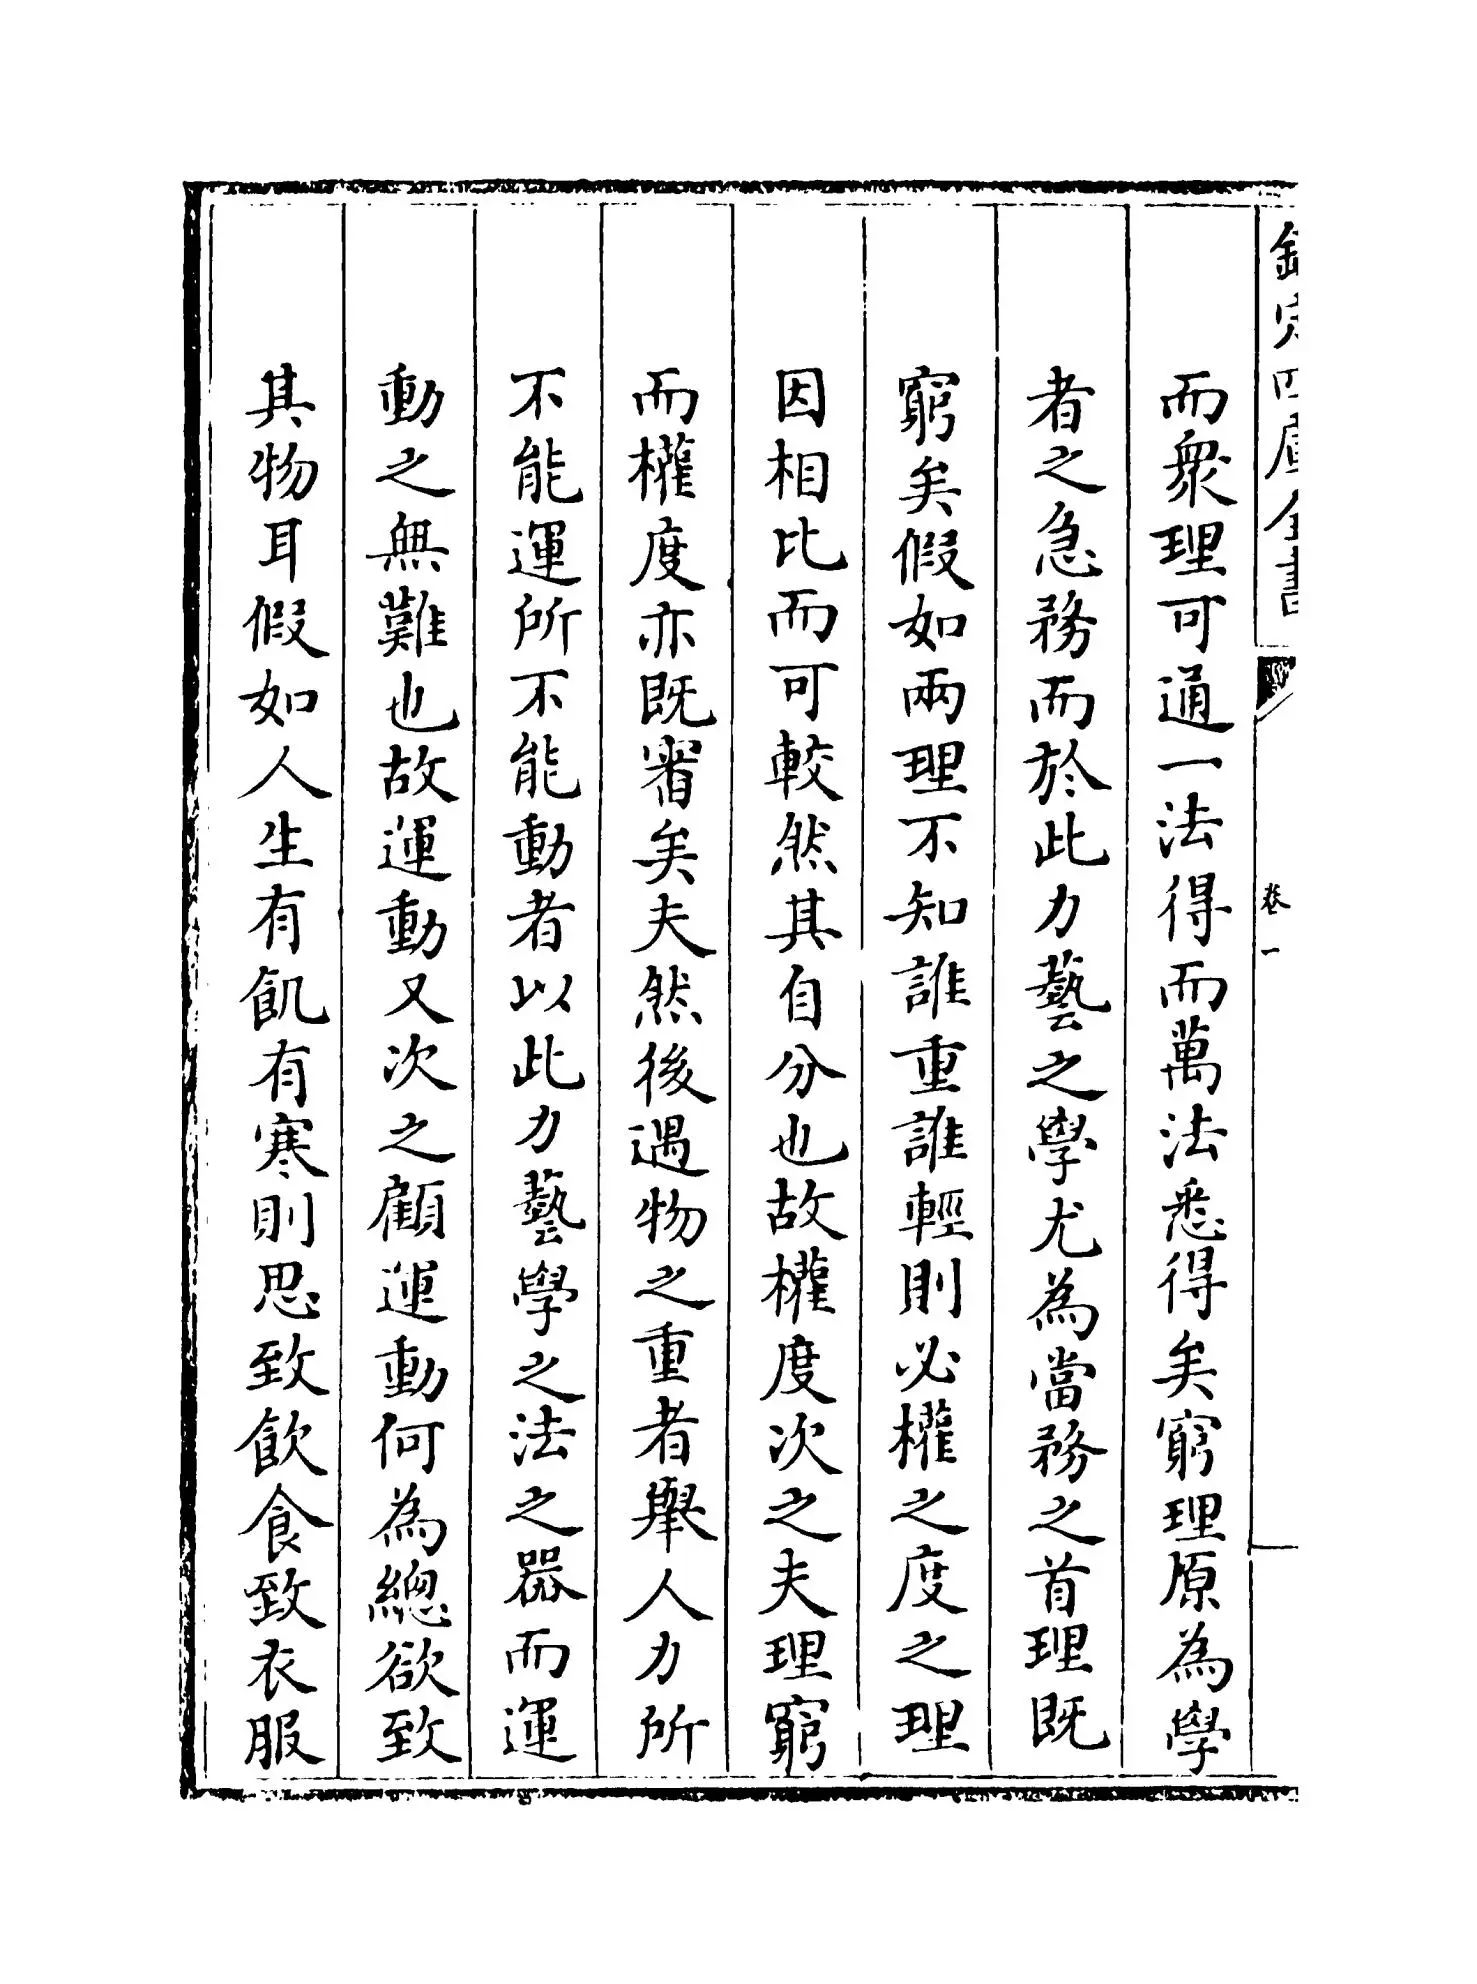 欽定四庫全書
卷一
而衆理可通一法得而萬法悉得矣窮理原為學
者之急務而於此力藝之學尤為當務之首理既
窮矣假如兩理不知誰重誰輕則必權之度之理
因相比而可較然其自分也故權度次之夫理窮
而權度亦既審矣夫然後遇物之重者舉人力所
不能運所不能動者以此力藝學之法之器而運
動之無難也故運動又次之顧運動何為總欲致
其物耳假如人生有飢有寒則思致飲食致衣服